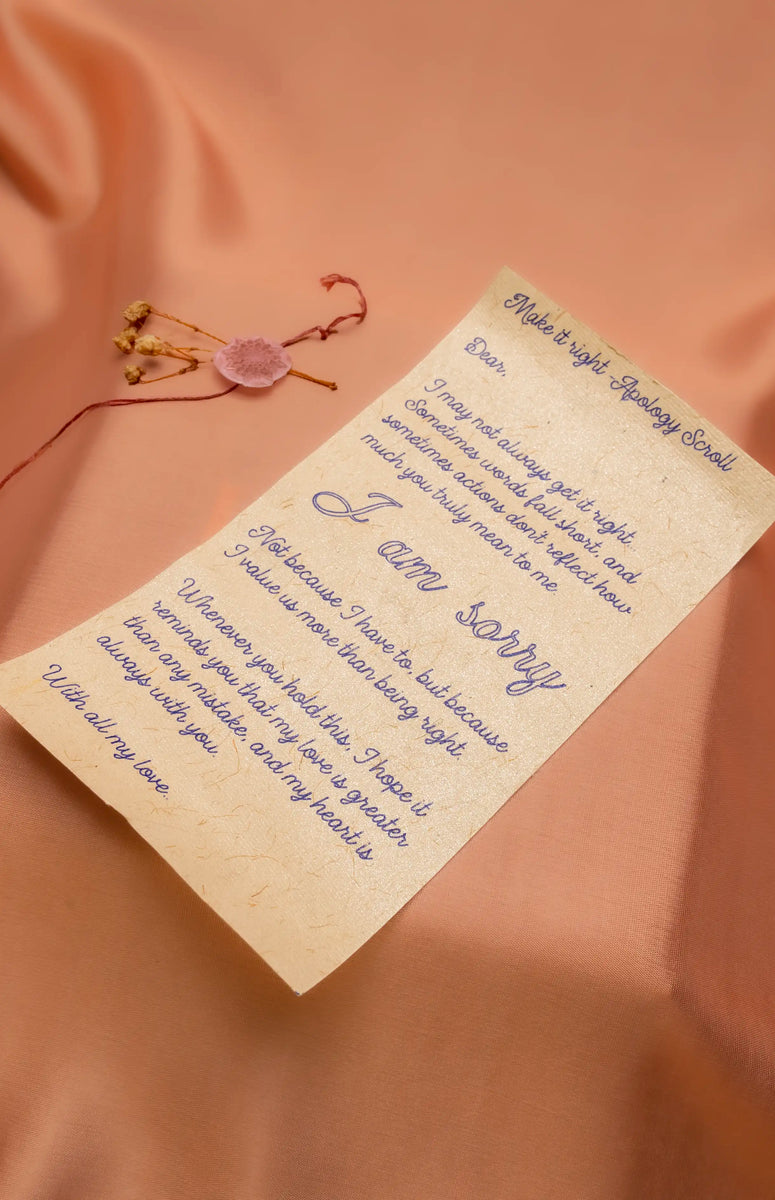 Make it right -Apology Scroll
Dear,
I may not always get it right...
Sometimes words fall short, and
sometimes actions don't reflect how
much you truly mean to me.
I am sorry
Not because I have to, but because
I value us more than being right.
Whenever you hold this, I hope it
reminds you that my love is greater
than any mistake, and my heart is
always with you.
With all my love...